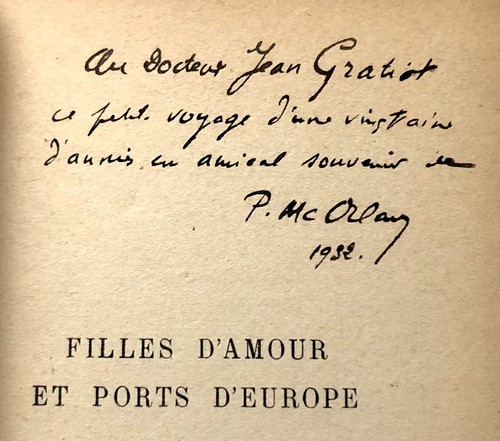 Au Docteur Jean Gratiot
ce petit voyage d'une vingtaine
d'années en amical souvenir de
P. Mc Orlan
1932.
FILLES D'AMOUR
ET PORTS D'EUROPE